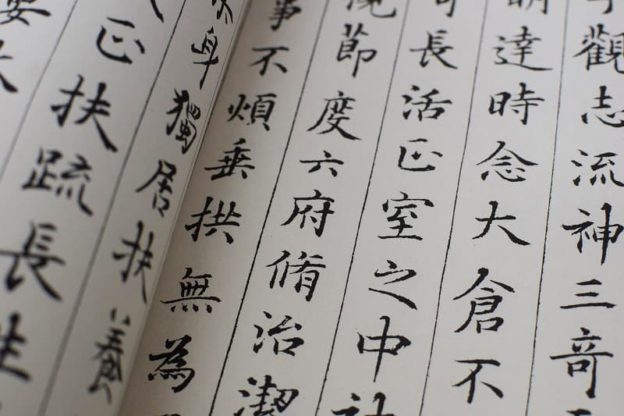 觀志流神三奇
明達時念大倉不
可長活正室之中神
節度六府脩治潔
事不煩垂拱無為
身獨居扶養
正扶疏長生